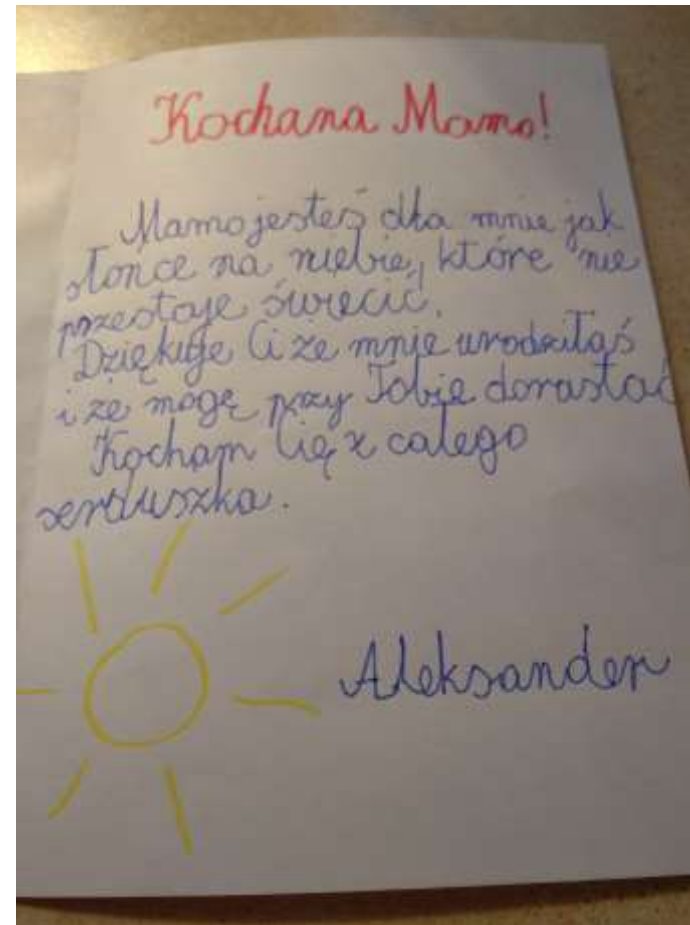 Kochana Mamo!
Mamo jesteś dla mnie jak
słońce na niebie, które nie
przestaje świecić.
Dziękuje Ci że mnie urodziłaś
i że mogę przy Tobie dorastać
Kocham Cię z całego
serduszka.
Aleksander